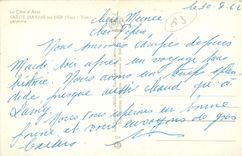 La Côte d'Azur
SAINTE-MAXIME sur MER (Var) - Vue
générale
le 30.8.62
Chère Mémée
Cher Pépère,
83
Nous sommes campés depuis
Mardi soir après un voyage sans
histoire. Nous avons un temps splen
dide presque aussi chaud qu'à
Lamy.
Nous vous espérons en bonne
forme, et vous envoyons de gros
baisers